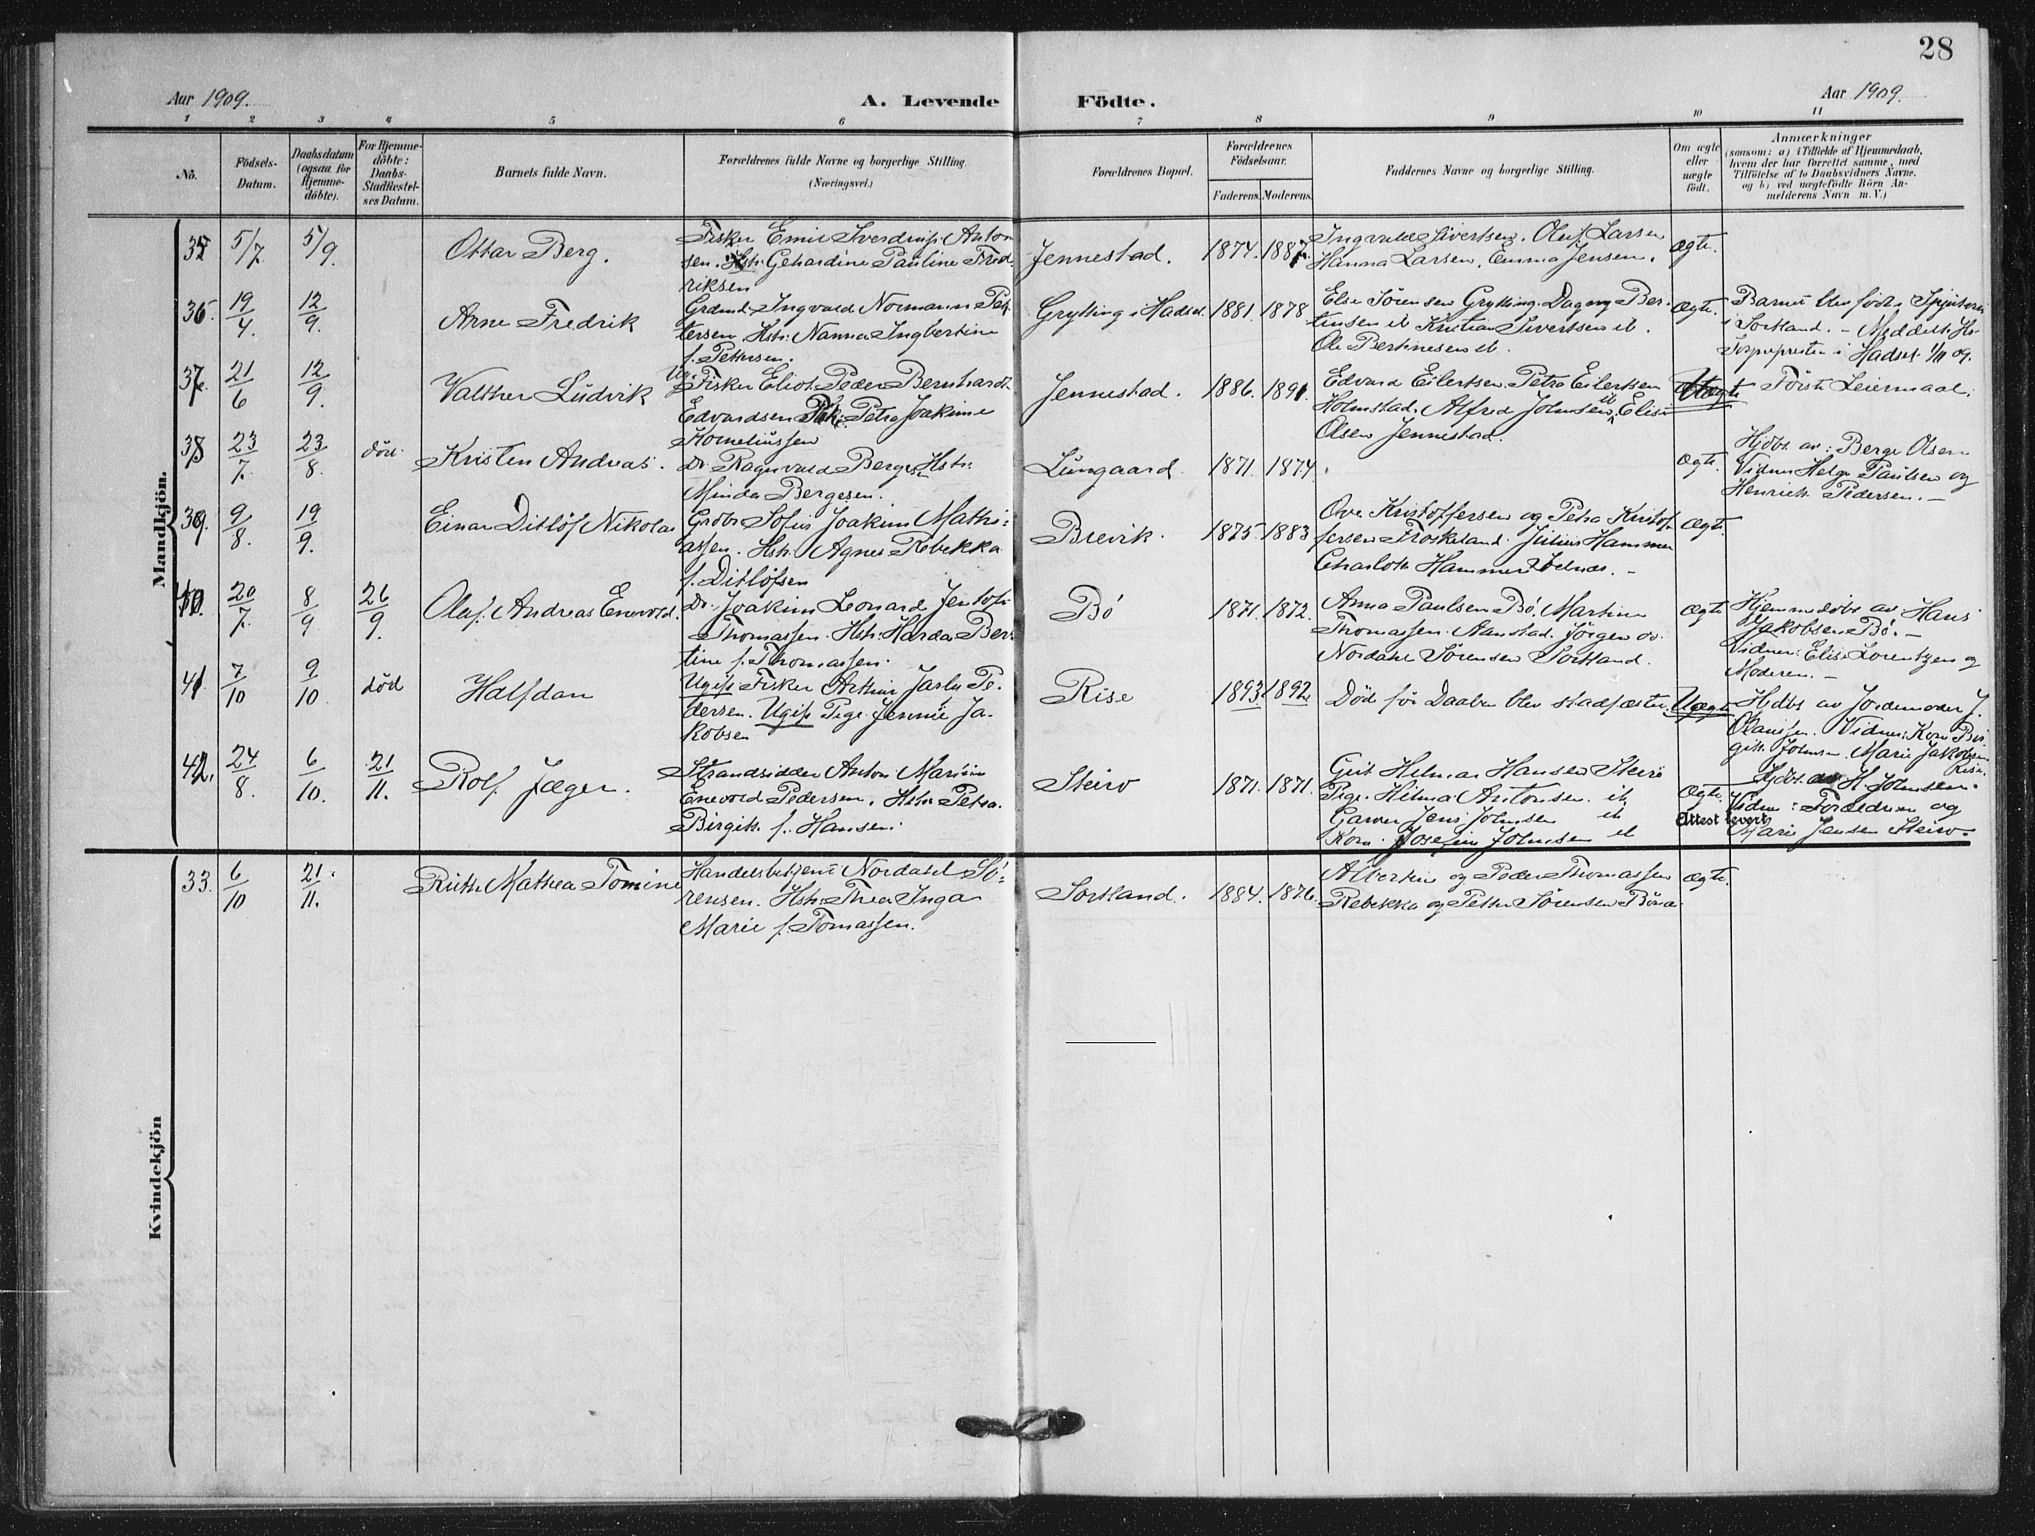 28
Aar 1909. A. Levende Födte. Aar 1909.
1 2 3 4 5 6 7 8 9 10 11
No. Födsels-Datum. Daabsdatum (ogsaa for Hjemmedöbte). For Hjemmedöbte: Daabs-Stadfæstelses Datum. Barnets fulde Navn. Forældrenes fulde Navne og borgerlige Stilling. (Næringsvei.) Forældrenes Bopæl. Forældrenes Födselsaar. Faderens. Moderens. Faddernes Navne og borgerlige Stilling. Om ægte eller uægte födt. Anmærkninger (saasom: a) i Tilfælde af Hjemmedaab, hvem der har forrettet samme, med Tilföielse af to Daabsvidners Navne, og b) ved uægtefödte Börn Anmelderens Navn m. V.)
Mandkjön.
5/7 5/9 Ottar Berg. Fisker Emil Sverdrup Anton
sen. Hstr. Gehardine Pauline Fred
riksen
Jennestad. 1874. 1887. Ingvald Sivertsen. Oluf Larsen
Hanna Larsen. Emma Jensen.
Ægte.
36. 19/4. 12/9. Arne Fredrik Grdmd. Ingvald Normann Pet
tersen. Hstr. Nanna Ingbertine
f. Pettersen.
Grytting i Hadsel 1881. 1878 Else Sörensen Grytting. Dagny Ber-
tinsen ib Kristian Sivertsen ib.
Ole Bertinesen ib.
Ægte. Barnet blev født i
i Sortland. – Meddelt
i Hadsel 1/11 09.
37. 21/6 12/9. Valther Ludvik Ug. Fisker Eliot Peder Bernhardt
Edvardsen Pike Petra Joakime
Korneliussen
Jennestad. 1886. 1891. Edvard Eilertsen. Petra Eilertsen
Holmstad. Alfred Johnsen ib Elise
Olsen Jennestad.
Uægte Første Leiermaal.
38. 23/7. 23/8. død. Kristen Andreas. Do. Ragnvald Berges. Hstr.
Minda Bergesen.
Lungaard. 1871. 1874. Ægte. Hjdbt. av: Berge Olsen
Vidner Helge Paulsen og
Henrich Pedersen. –
39. 9/8. 19/9. Einar Ditløf Nikolas Grdbr. Sofus Joakim Mathi-
assen. Hstr. Agnes Rebekka
f. Ditløfsen
Brevik. 1875. 1883 Ove Kristoffersen og Petra Kristof
fersen Frøskeland. Julius Hammer
Charlotte Hammer Vednæs. –
Ægte.
40. 20/7. 8/9 26/9. Oluf Andreas Enevold. Do. Joakim Leonard Jentoft
Thomassen. Hstr. Harda Ber
tine f. Thomassen.
Bö 1871. 1872. Anna Paulsen Bö. Martine
Thomassen. Aanstad. Jørgen og
Nordahl Sörensen Sortland.
Ægte Hjemmedöbt av Hans
Jakobsen Bö. –
Vidner: Elise Lorentzen og
Moderen. –
41. 7/10 9/10 død Halfdan Ugift Fisker Arthur Jarls Pe-
dersen. Ugift Pige Jennie Ja-
kobsen
Rise 1893. 1892 Død før Daaben blev stadfæstet. Uægte Hjdbt av Jordemoder J.
Olaussen. Vidner: Kone Bir
gitte Johnsen Marie Jakobsen
Rise.
42. 24/8. 6/10. 21/11. Rolf Jæger. Strandsidder Anton Marius
Enevold Pedersen. Hstr. Petra
Birgitte f. Hansen.
Steiro 1871. 1871. Gut Helmar Hansen Steirö
Pige. Hilma Antonsen. ib
Garver Jens Johnsen ib
Kone Josefine Johnsen ib
Ægte. Attest levert Hjdbt. av H. Johnsen.
Vidner: Forældrene og
Marie Jensen Steiro.
Kvindekjön
33. 6/10 21/11. Ruth Mathea Tomine Handelsbetjent Nordahl Sö-
rensen. Hstr. Thea Inga
Marie f. Tomassen.
Sortland. 1884. 1876. Albertine og Peder Thomassen
Rebekka og Petter Sörensen Bönæ
Ægte.